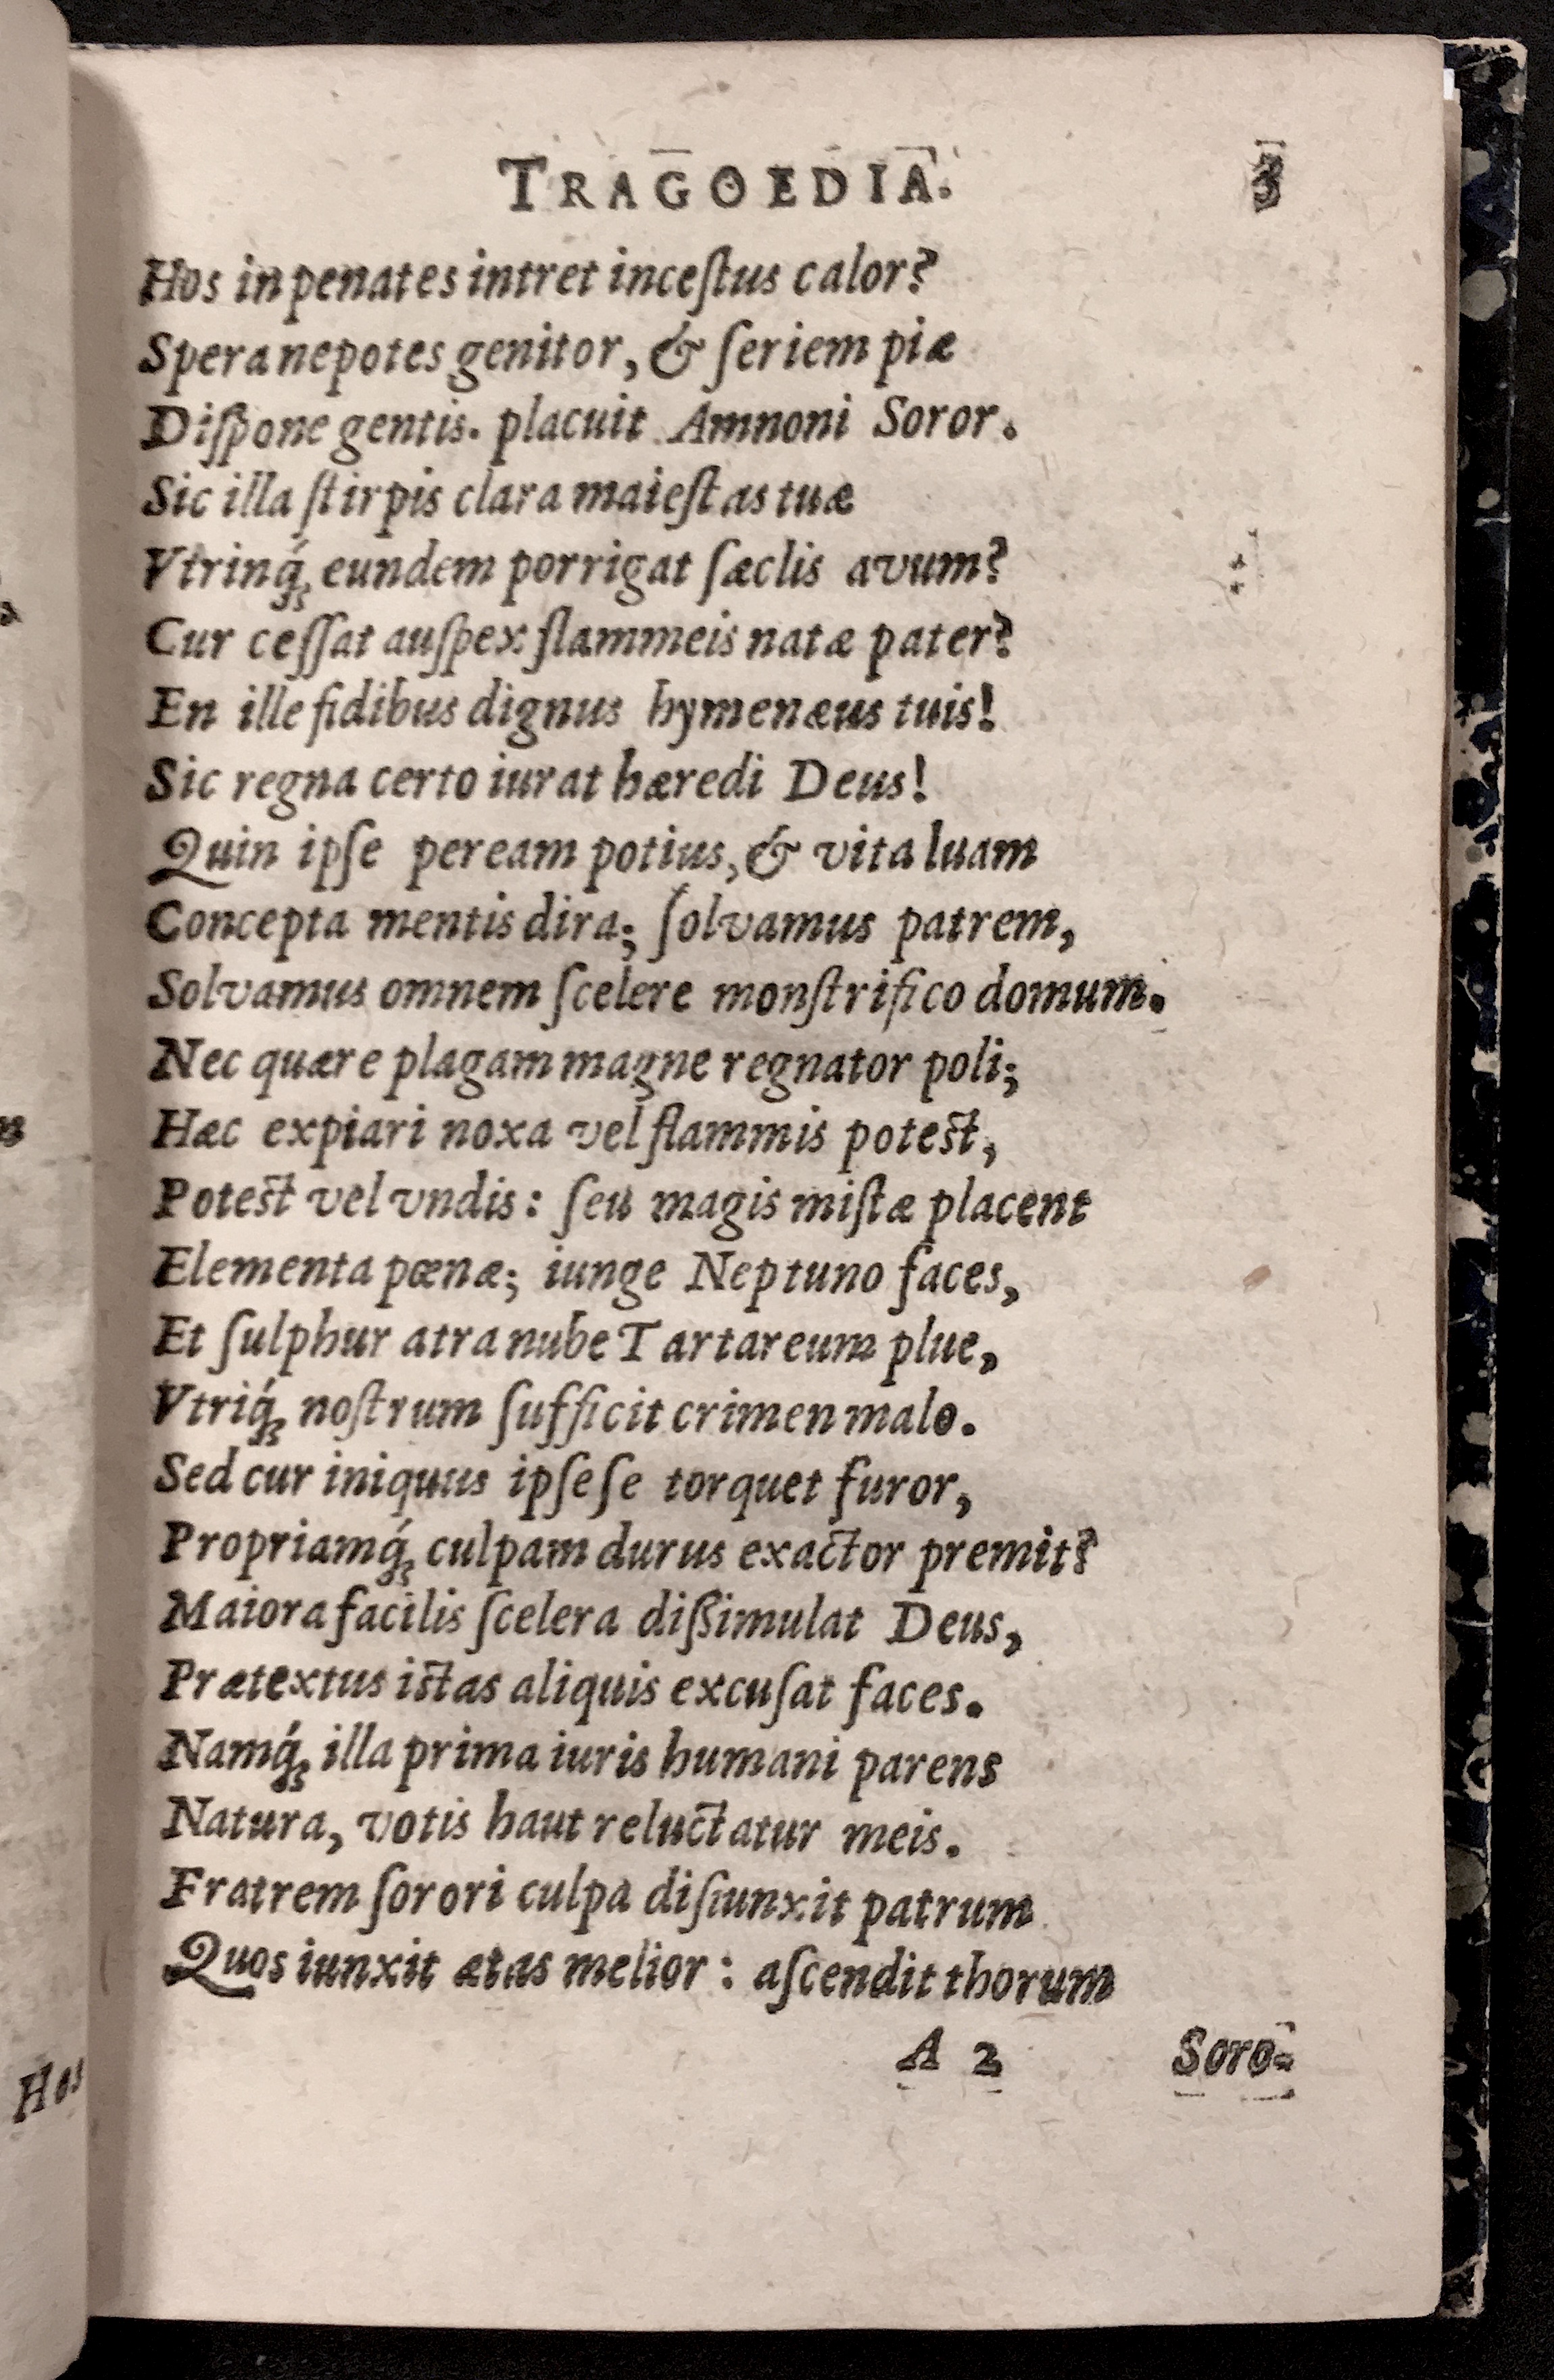 TRAGOEDIA. 3
Hos in penates intret inceſtus calor?
Spera nepotes genitor, & ſeriem piæ
Diſpone gentis. placuit Amnoni Soror.
Sic illa ſtirpis clara maieſtas tuæ
Vtrinq́ꝫ eundem porrigat ſæclis avum?
Cur ceſſat auſpex flammeis natæ pater?
En ille fidibus dignus hymenæus tuis!
Sic regna certo iurat hæredi Deus!
Quin ipſe peream potius, & vita luam
Concepta mentis dira; ſolvamus patrem,
Solvamus omnem ſcelere monſtrifico domum.
Nec quære plagam magne regnator poli;
Hæc expiari noxa vel flammis potest,
Potest vel vndis: ſeu magis miſtæ placent
Elementa pœnæ; iunge Neptuno faces,
Et ſulphur atra nube Tartareum plue,
Vtriq́ꝫ noſtrum ſufficit crimen malo.
Sed cur iniquus ipſeſe torquet furor,
Propriamq́ꝫ culpam durus exactor premit?
Maiora facilis ſcelera dißimulat Deus,
Prætextus istas aliquis excuſat faces.
Namq́ꝫ illa prima iuris humani parens
Natura, votis haut reluctatur meis.
Fratrem ſorori culpa diſiunxit patrum
Quos iunxit ætas melior: aſcendit thorum
A 2 Soro-
Hos